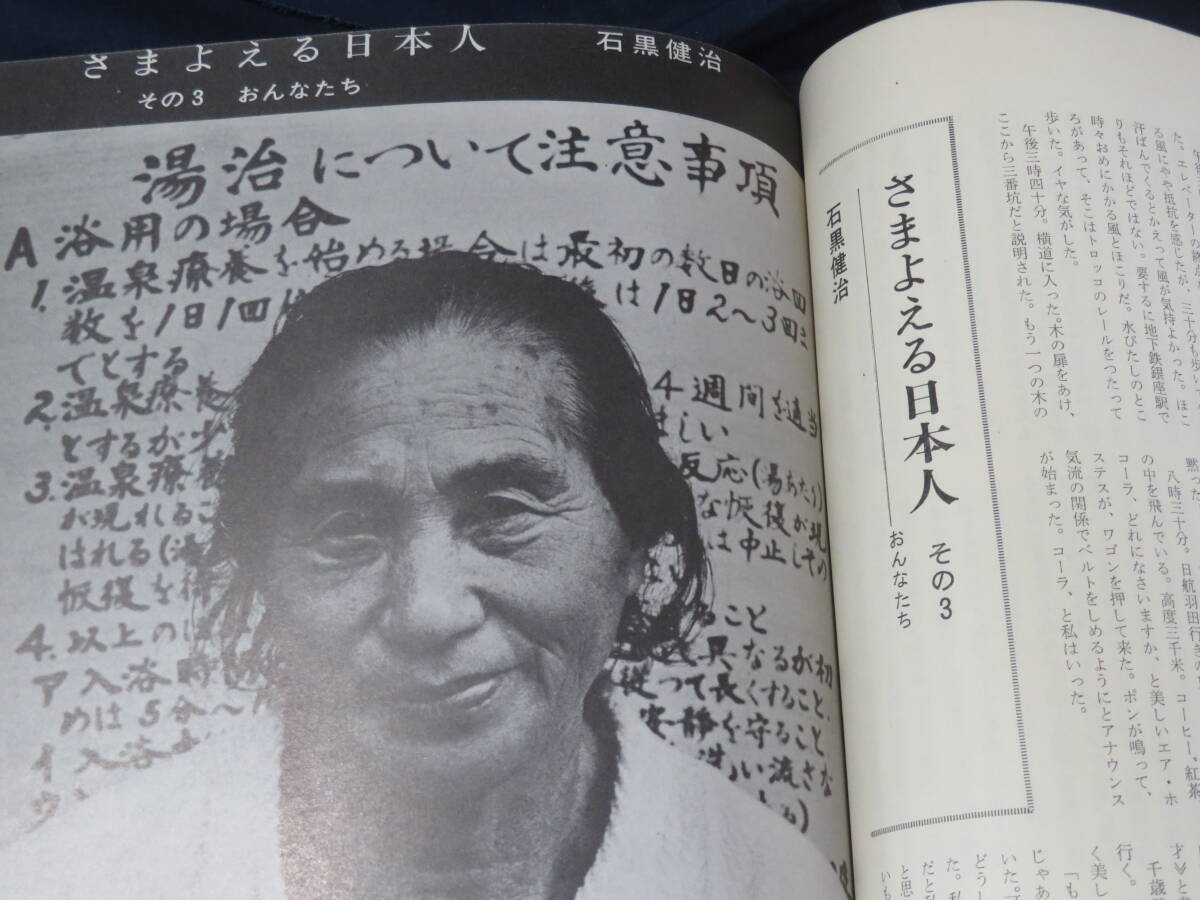 さまよえる日本人 石黒健治
その3 おんなたち
湯治について注意事項
A 浴用の場合
1. 温泉療養を始める場合は最初の数日の浴回
数を1日1回 は1日2〜3回
てとする
2. 温泉療養 4週間を適当
とするが
3. 温泉療養 反応(湯あたり)
が現れるこ な恢復が現
はれる は中止しての
恢復を待
4. 以上の こと
ア 入浴時 異なるが初
めは5分〜 従つて長くすること、
イ 入浴 安静を守ること
い流さな
た。エレベーターの
る風にやや抵抗を感じたが、三十分も歩い
汗ばんでくるとかえって風が気持よかった。ほこ
りもそれほどではない。要するに地下鉄銀座駅で
時々おめにかかる風とほこりだ。水びたしのとこ
ろがあって、そこはトロッコのレールをつたって
歩いた。イヤな気がした。
午後三時四十分。横道に入った。木の扉をあけ、
ここから三番坑だと説明された。もう一つの木の
さまよえる日本人 その3
おんなたち
石黒健治
黙っ
八時三十分。日航羽田行き
の中を飛んでいる。高度三千米。コーヒー、紅茶
コーラ、どれになさいますか、と美しいエア・ホ
ステスが、ワゴンを押して来た。ポンが鳴って、
気流の関係でベルトをしめるようにとアナウンス
が始まった。コーラ、と私はいった。
才》と
千歳
行く。
く美し
「も
じゃあ
いた。
どうし
た。私
だと
と思
いも